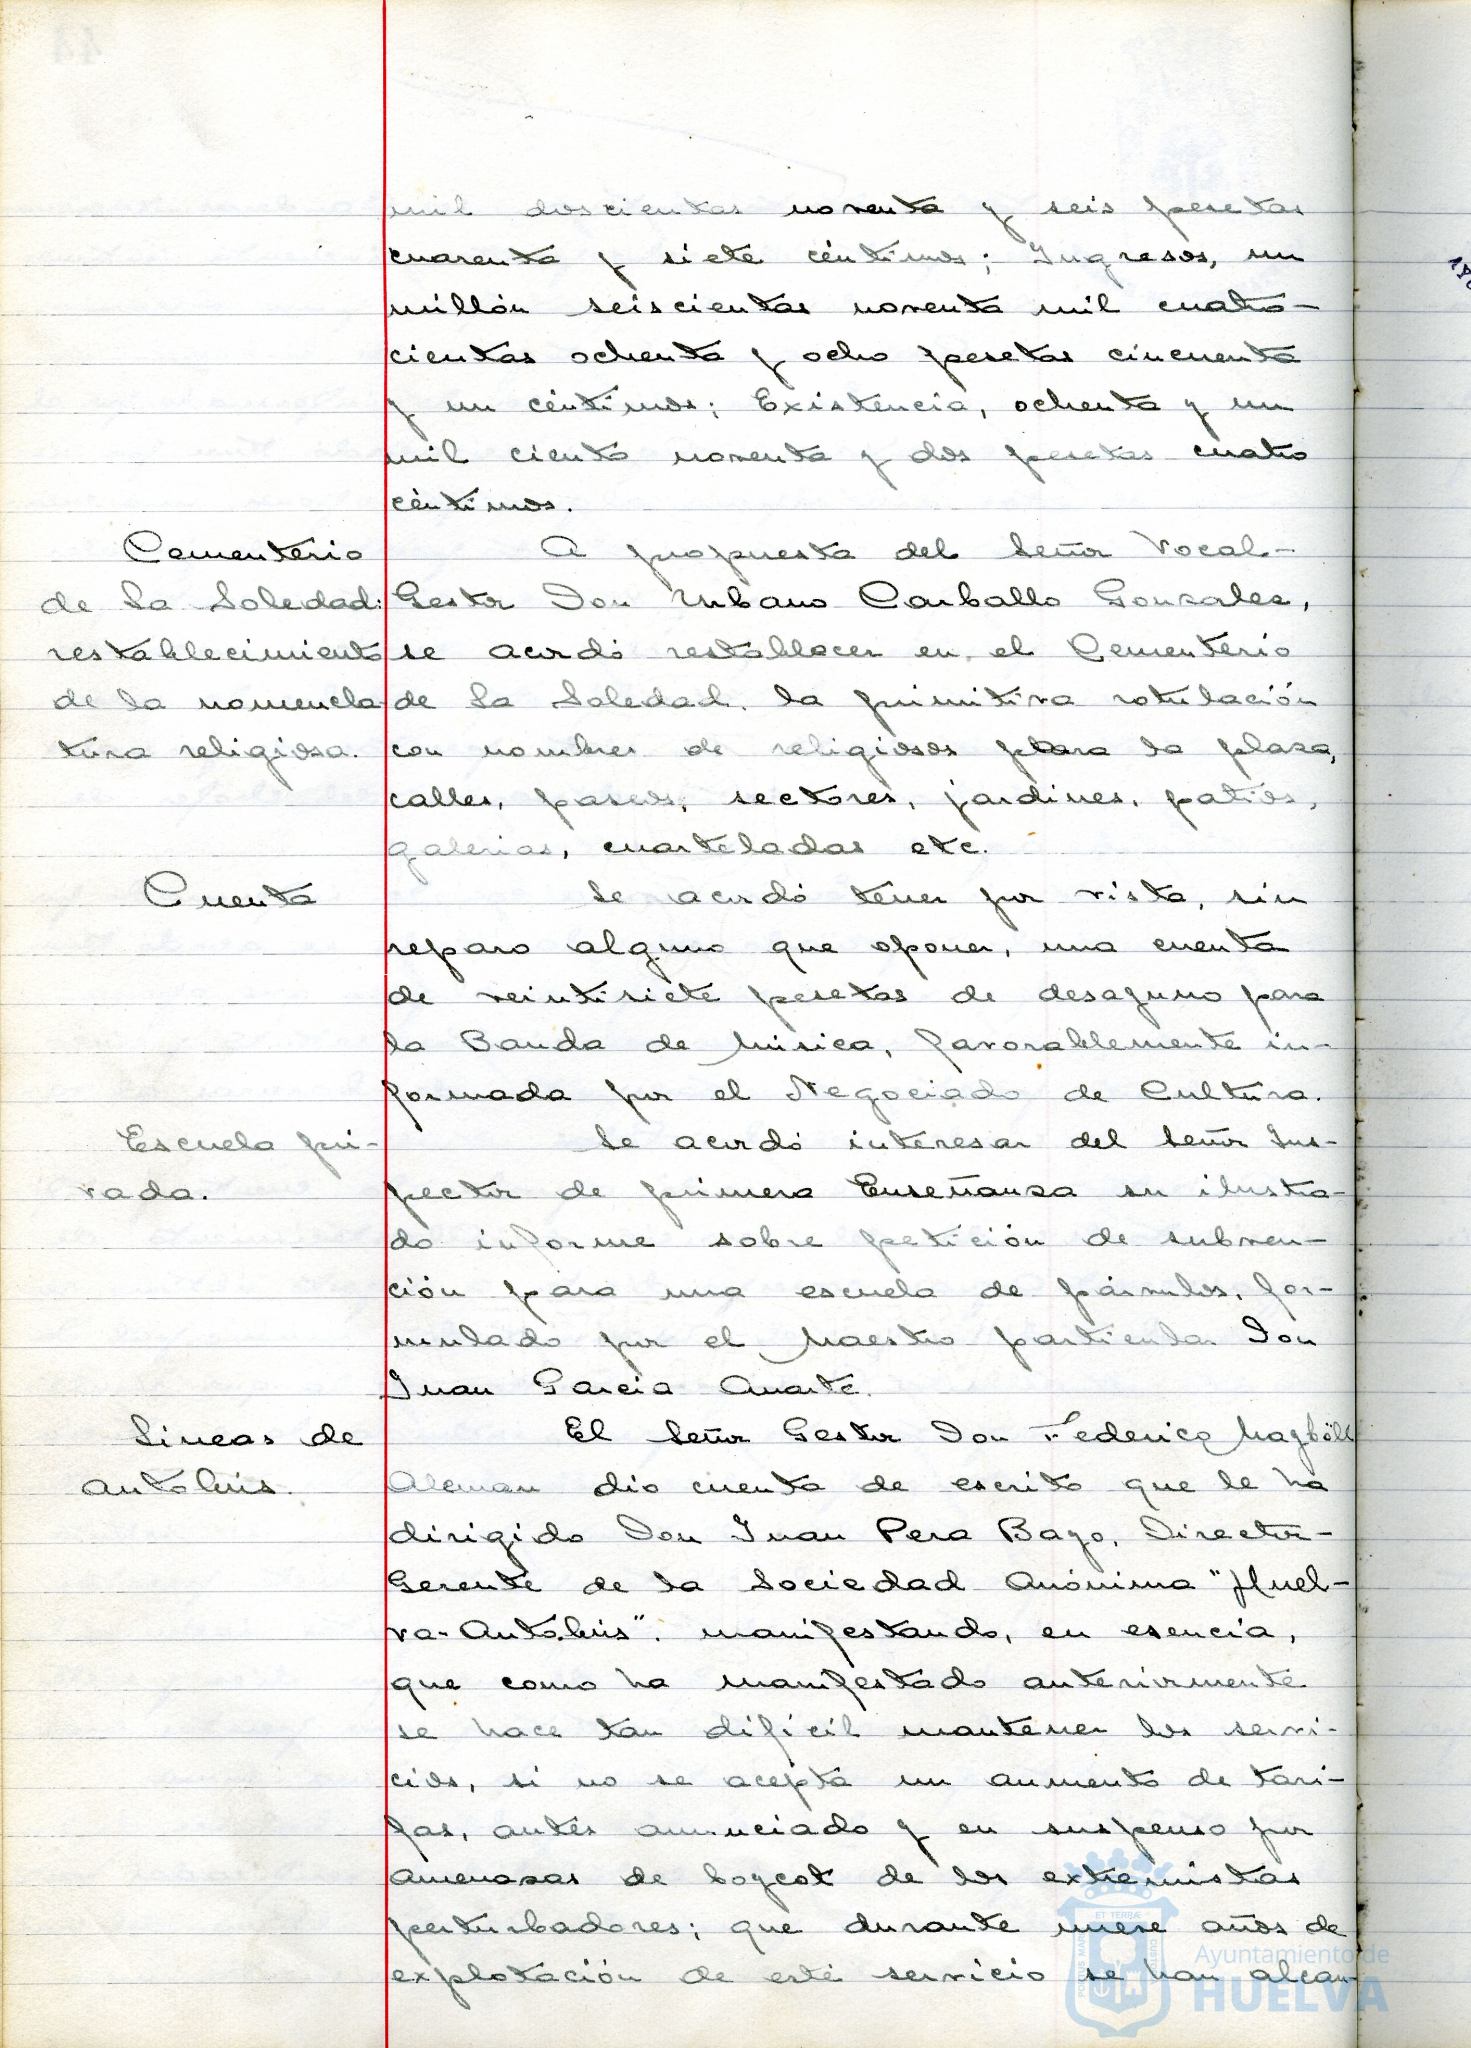 mil doscientas noventa y seis pesetas
cuarenta y siete céntimos; Ingresos, un
millón seiscientas noventa mil cuatro-
cientas ochenta y ocho pesetas cincuenta
y un céntimos; Existencia, ochenta y un
mil ciento noventa y dos pesetas cuatro
céntimos.
Cementerio
de La Soledad:
restablecimiento
de la nomencla
tura religiosa.
A propuesta del Señor Vocal-
Gestor Don Urbano Carballo Gonzalez,
se acordó restablecer en el Cementerio
de La Soledad, la primitiva rotulación
con nombres de religiosos para la plaza,
calles, paseos, sectores, jardines, patios,
galerias, cuarteladas etc.
Cuenta
Se acordó tener por vista, sin
reparo alguno que oponer, una cuenta
de veintisiete pesetas de desayuno para
la Banda de Música, favorablemente in-
formada por el Negociado de Cultura.
Escuela pri-
vada.
Se acordó interesar del Señor Ins-
pector de primera Enseñanza su ilustra-
do informe sobre petición de subven-
ción para una escuela de párvulos, for-
mulado por el Maestro particular Don
Juan Garcia
Lineas de
autobús.
El Señor Gestor Don Federico
Aleman dio cuenta de escrito que le ha
dirigido Don Juan Pera Bayo, Director-
Gerente de la Sociedad Anónima "Huel-
va-Autobús". manifestando, en esencia,
que como ha manifestado anteriormente
se hace tan dificil mantener los servi-
cios, si no se acepta un aumento de tari-
fas, antes anunciado y en suspenso por
amenazas de boycot de los extremistas
perturbadores; que durante nueve años de
explotación de este servicio se han alcan-
Ayuntamiento de
HUELVA